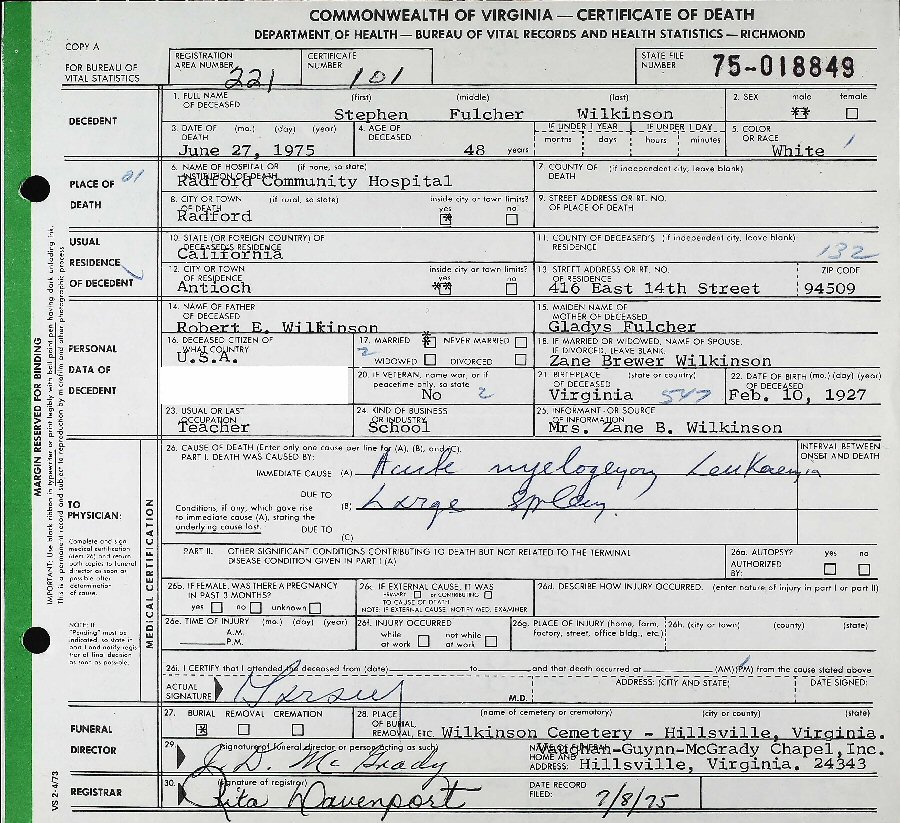 COMMONWEALTH OF VIRGINIA — CERTIFICATE OF DEATH
DEPARTMENT OF HEALTH — BUREAU OF VITAL RECORDS AND HEALTH STATISTICS — RICHMOND
COPY A
FOR BUREAU OF VITAL STATISTICS
REGISTRATION AREA NUMBER 221
CERTIFICATE NUMBER 101
STATE FILE NUMBER 75-018849
DECEDENT
1. FULL NAME OF DECEASED (first) (middle) (last)
Stephen Fulcher Wilkinson
2. SEX male female
**
3. DATE OF DEATH (mo.) (day) (year)
June 27, 1975
4. AGE OF DECEASED
48 years
IF UNDER 1 YEAR months days
IF UNDER 1 DAY hours minutes
5. COLOR OR RACE
White 1
PLACE OF DEATH
6. NAME OF HOSPITAL OR INSTITUTION OF DEATH (if none, so state)
Radford Community Hospital
7. COUNTY OF DEATH (if independent city, leave blank)
8. CITY OR TOWN OF DEATH (if rural, so state)
Radford
inside city or town limits? yes no
*
9. STREET ADDRESS OR RT. NO. OF PLACE OF DEATH
USUAL RESIDENCE OF DECEDENT
10. STATE (OR FOREIGN COUNTRY) OF DECEASED'S RESIDENCE
California
11. COUNTY OF DECEASED'S RESIDENCE (if independent city, leave blank)
132
12. CITY OR TOWN OF RESIDENCE
Antioch
inside city or town limits? yes no
**
13. STREET ADDRESS OR RT. NO. OF RESIDENCE
416 East 14th Street
ZIP CODE
94509
PERSONAL DATA OF DECEDENT
14. NAME OF FATHER OF DECEASED
Robert E. Wilkinson
15. MAIDEN NAME OF MOTHER OF DECEASED
Gladys Fulcher
16. DECEASED CITIZEN OF WHAT COUNTRY
U.S.A.
17. MARRIED * NEVER MARRIED
2 WIDOWED DIVORCED
18. IF MARRIED OR WIDOWED, NAME OF SPOUSE. IF DIVORCED, LEAVE BLANK.
Zane Brewer Wilkinson
20. IF VETERAN, name war, or if peacetime only, so state
No 2
21. BIRTHPLACE OF DECEASED (state or country)
Virginia 547
22. DATE OF BIRTH (mo.) (day) (year) OF DECEASED
Feb. 10, 1927
23. USUAL OR LAST OCCUPATION
Teacher
24. KIND OF BUSINESS OR INDUSTRY
School
25. INFORMANT - OR SOURCE OF INFORMATION
Mrs. Zane B. Wilkinson
TO PHYSICIAN:
Complete and sign medical certification (item 26) and return both copies to funeral director as soon as possible after determination of cause.
NOTE: If "Pending" must be indicated, so state in part I and notify registrar of final decision as soon as possible.
MEDICAL CERTIFICATION
26. CAUSE OF DEATH (Enter only one cause per line for (A), (B), and (C).
PART I. DEATH WAS CAUSED BY:
INTERVAL BETWEEN ONSET AND DEATH
IMMEDIATE CAUSE (A) Acute myelogenous Leukaemia
DUE TO
Conditions, if any, which gave rise to immediate cause (A), stating the underlying cause last.
(B) Large Spleen
DUE TO
(C)
PART II. OTHER SIGNIFICANT CONDITIONS CONTRIBUTING TO DEATH BUT NOT RELATED TO THE TERMINAL DISEASE CONDITION GIVEN IN PART I (A)
26a. AUTOPSY? yes no
AUTHORIZED BY:
26b. IF FEMALE, WAS THERE A PREGNANCY IN PAST 3 MONTHS?
yes no unknown
26c. IF EXTERNAL CAUSE, IT WAS
PRIMARY or CONTRIBUTING
TO CAUSE OF DEATH
NOTE: IF EXTERNAL CAUSE, NOTIFY MED. EXAMINER
26d. DESCRIBE HOW INJURY OCCURRED. (enter nature of injury in part I or part II)
26e. TIME OF INJURY (mo.) (day) (year)
A.M.
P.M.
26f. INJURY OCCURRED
while at work not while at work
26g. PLACE OF INJURY (home, farm, factory, street, office bldg., etc.)
26h. (city or town) (county) (state)
26i. I CERTIFY that I attended the deceased from (date) to and that death occurred at (AM)(PM) from the cause stated above
ACTUAL SIGNATURE
M.D.
ADDRESS: (CITY AND STATE)
DATE SIGNED:
FUNERAL DIRECTOR
27. BURIAL REMOVAL CREMATION
*
28. PLACE OF BURIAL, REMOVAL, ETC. (name of cemetery or crematory) (city or county) (state)
Wilkinson Cemetery - Hillsville, Virginia.
29. (signature of funeral director or person acting as such)
J. D. McGrady
NAME OF FUNERAL HOME AND ADDRESS:
Vaughan-Guynn-McGrady Chapel, Inc.
Hillsville, Virginia. 24343
REGISTRAR
30. (signature of registrar)
Rita Davenport
DATE RECORD FILED:
7/8/75
MARGIN RESERVED FOR BINDING
IMPORTANT: Use black ribbon in typewriter or print legibly with ball point pen having dark unfading ink. This is a permanent record and subject to reproduction by microfilm and other photographic process
VS 2-4/73